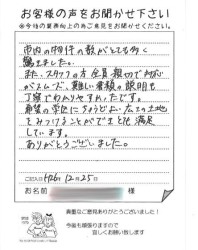 お客様の声をお聞かせ下さい
※今後の業務向上の為ご意見をお聞かせください。
市内の物件の数がとても多く
驚きました。
また、スタッフの方全員親切で対応
がスムーズ、難しい書類の説明も
丁寧でわかりやすかったです。
希望の学区にちょうど広さの土地
をみつけることができて大変満足
しています。
ありがとうございました。
ご記入日 H26年12月25日
お名前 様
貴重なご意見ありがとうございました！
今後も頑張りますので
宜しくお願い致します